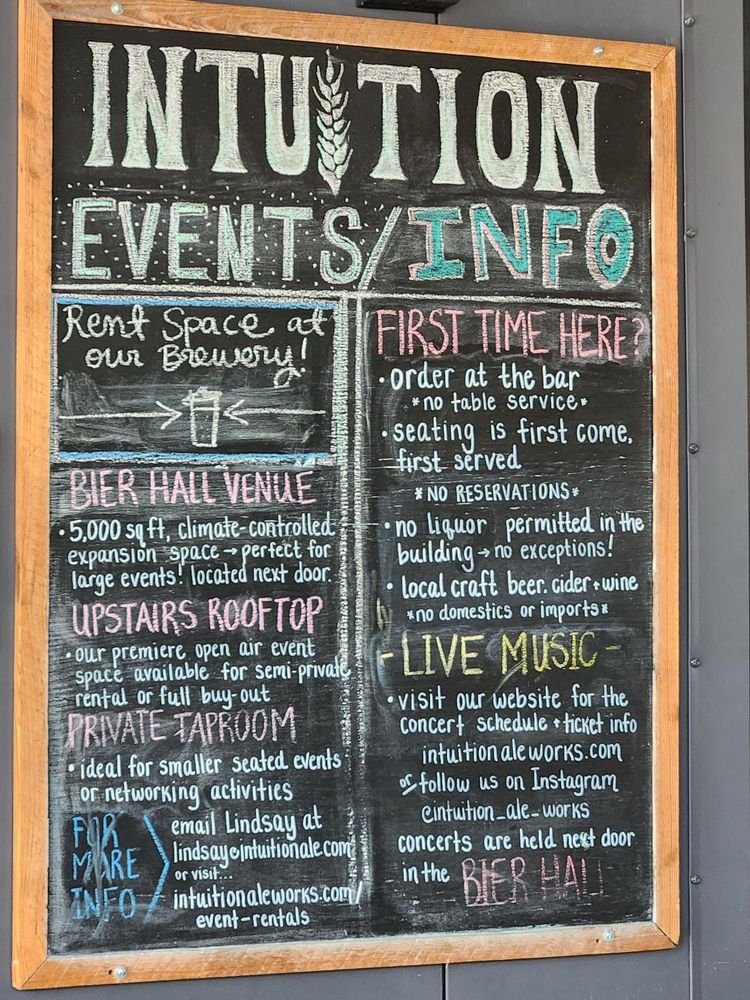 INTUITION
EVENTS/INFO
Rent Space at
our Brewery!
BIER HALL VENUE
• 5,000 sq ft, climate-controlled
expansion space → perfect for
large events! located next door
UPSTAIRS ROOFTOP
• our premiere open air event
space available for semi-private
rental or full buy-out
PRIVATE TAPROOM
• ideal for smaller seated events
or networking activities
FOR
MORE
INFO
email Lindsay at
lindsay@intuitionale.com
or visit...
intuitionaleworks.com/
event-rentals
FIRST TIME HERE?
• order at the bar
*no table service*
• seating is first come,
first served
*NO RESERVATIONS*
• no liquor permitted in the
building → no exceptions!
• local craft beer, cider + wine
*no domestics or imports*
- LIVE MUSIC -
• visit our website for the
concert schedule + ticket info
intuitionaleworks.com
or follow us on Instagram
@intuition_ale_works
concerts are held next door
in the BIER HALL